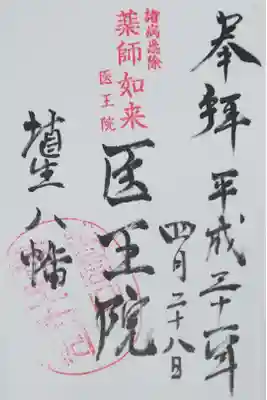 奉拝 平成三十一年
四月二十八日
諸病悉除
薬師如来
医王院
医王院
埴生八幡